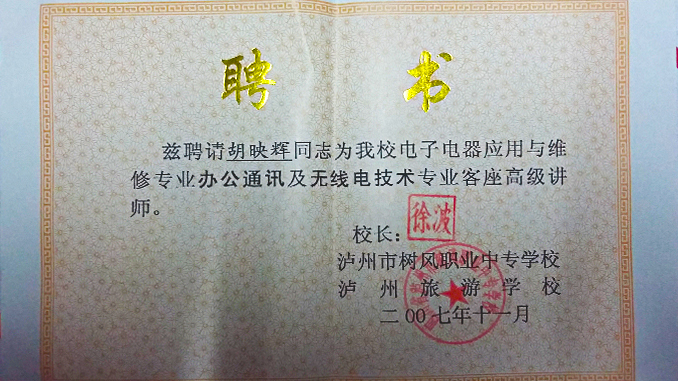 聘 书
兹聘请胡映辉同志为我校电子电器应用与维
修专业办公通讯及无线电技术专业客座高级讲
师。
徐波
校长：
泸州市树风职业中专学校
泸州旅游学校
二00七年十一月